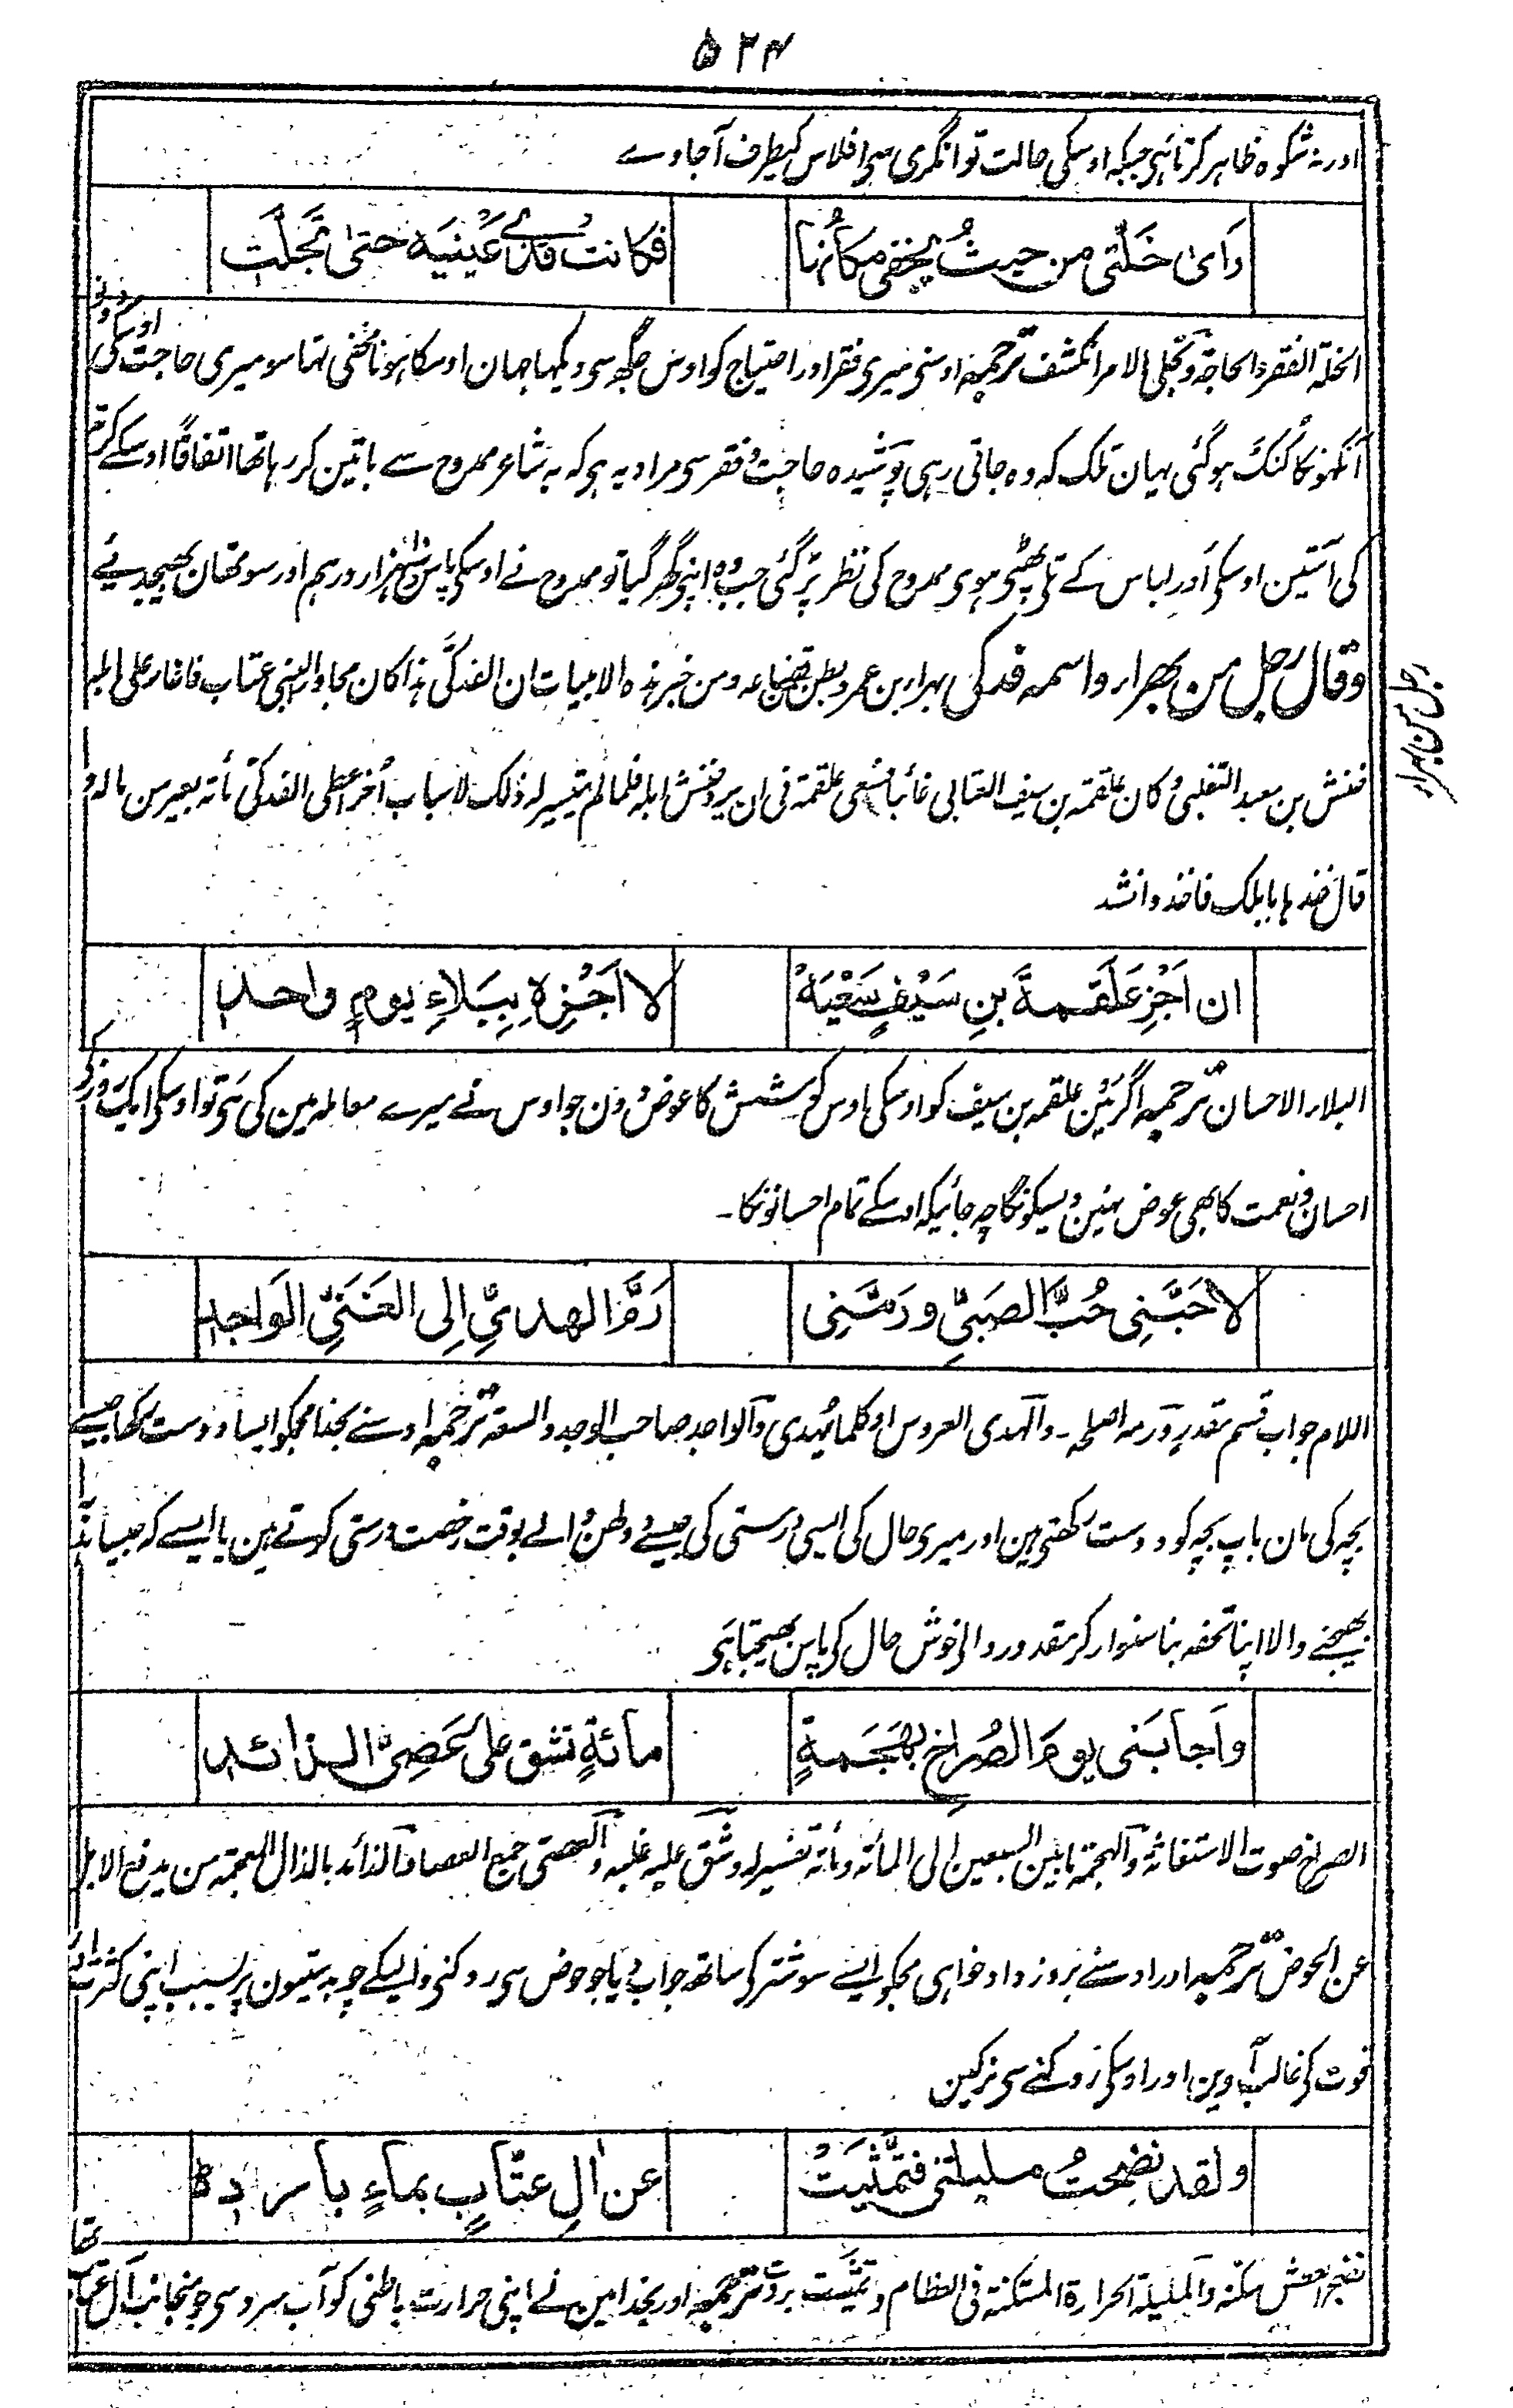 ۵۲۴
اور نہ شکوہ ظاہر کرتا ہی جبکہ اوسکی حالت توانگری سی افلاس کیطرف آجاوے
رَایٰ خَلَّتی من حیثُ یخفی مکانُہا فکانت قذیٰ عَینَیہ حتی تجلّت
الخلۃ الفقر والحاجۃ وتجلی الامر انکشف ترجمہ اوسنی میری فقر اور احتیاج کو اوس جگھ سی دیکھا جہان اوسکا ہونا مخفی تہا سو میری حاجت اوسکی
آنکہونکا کُنک ہوگئی یہان تلک کہ وہ جاتی رہی پوشیدہ حاجت وفقر سی مراد یہ ہی کہ یہ شاعر ممدوح سے باتین کررہا تھا اتفاقاً اوسکے کرتہ
کی آستین اوسکی اور لباس کے تلی پھٹی ہوی ممدوح کی نظر پڑگئی جب وہ اپنی گھر گیا تو ممدوح نے اوسکی پاس دس ہزار درہم اور سو تھان بھیجدئے
وقال رجل من بهراء واسمہ فدکی بہراء بن عمرو بطن من قضاعہ ومن خبر ہذہ الابیات ان الفدکی ہذا کان مجاورا لبنی عتاب فاغار علی ابلہ
فنش بن معبد التغلبی وکان علقمۃ بن سیف العتابی غائبا فسعی علقمۃ فی ان یرد فنش ابلہ فلما لم یتیسر لہ ذلک لاسباب اُخر اعطی الفدکی مأتہ بعیر من مالہ و
قال خذہا بابلک فاخذ وانشد
ان اَجْزِ عَلقمۃَ بنِ سَیْفٍ سَعْیَہٗ لا اَجْزِہٖ بِبَلاءِ یومٍ واحدٍ
البلاء الاحسان ترجمہ اگر مین علقمہ بن سیف کو اوسکی اوس کوشش کا عوض دون جو اوس نے میرے معاملہ مین کی ہی تو اوسکی ایک روزکی
احسان ونعمت کا بھی عوض نہین دیسکونگا چہ جائیکہ اوسکے تمام احسانونکا۔
لاَحَبَّنِی حُبَّ الصَبِیِّ ورَمَّنِی رَمَّ الہدیِّ اِلی الغَنیِّ الوَاجدِ
اللام جواب قسم مقدر ورمہ اصلحہ۔ والہدی العروس او کلما یُہدی والواجد صاحب الوجد والسعۃ ترجمہ اوسنے بخدا مجکو ایسا دوست رکھا جیسے
بچہ کی مان باپ بچہ کو دوست رکھتی ہین اور میری حال کی ایسی درستی کی جیسے دولھن والے بوقت رخصت درستی کرتے ہین یا ایسے کہ جیسا
بھیجنے والا اپنا تحفہ بنا سنوار کر مقدور والی خوش حال کی پاس بھیجتا ہی
واَجابَنی یومَ الصُراخِ بہَجمۃٍ مائۃٍ تشق علی عَصِیِّ الذائدِ
الصراخ صوت الاستغاثۃ والہجمۃ مابین السبعین الی المأتہ ومأتہ تفسیر لہ وشق علیہ غلبہ والعصی جمع العصا والذائد بالذال المعجمۃ من یدفع الابل
عن الحوض ترجمہ اور اوسنے بروز دادخواہی مجکو ایسے سو شتر کی ساتھ جواب دیا جو حوض سی روکنی والیکے چوبدستیون پر بسبب اپنی کثرت اور
قوت کی غالب آوین اور اوسکی روکنے سی نرکین
ولقد نضحتُ ملیلتی فتمثّیتْ عن اٰلِ عتّابٍ بماءٍ باردٍ
نضح العطش سکنہ والملیلۃ الحرارۃ المستکنۃ فی العظام وتمثیت بردت ترجمہ اور بخدا مین نے اپنی حرارت باطنی کو آب سرد سی جو منجانب آل عتاب تھا
رجل من بہراء